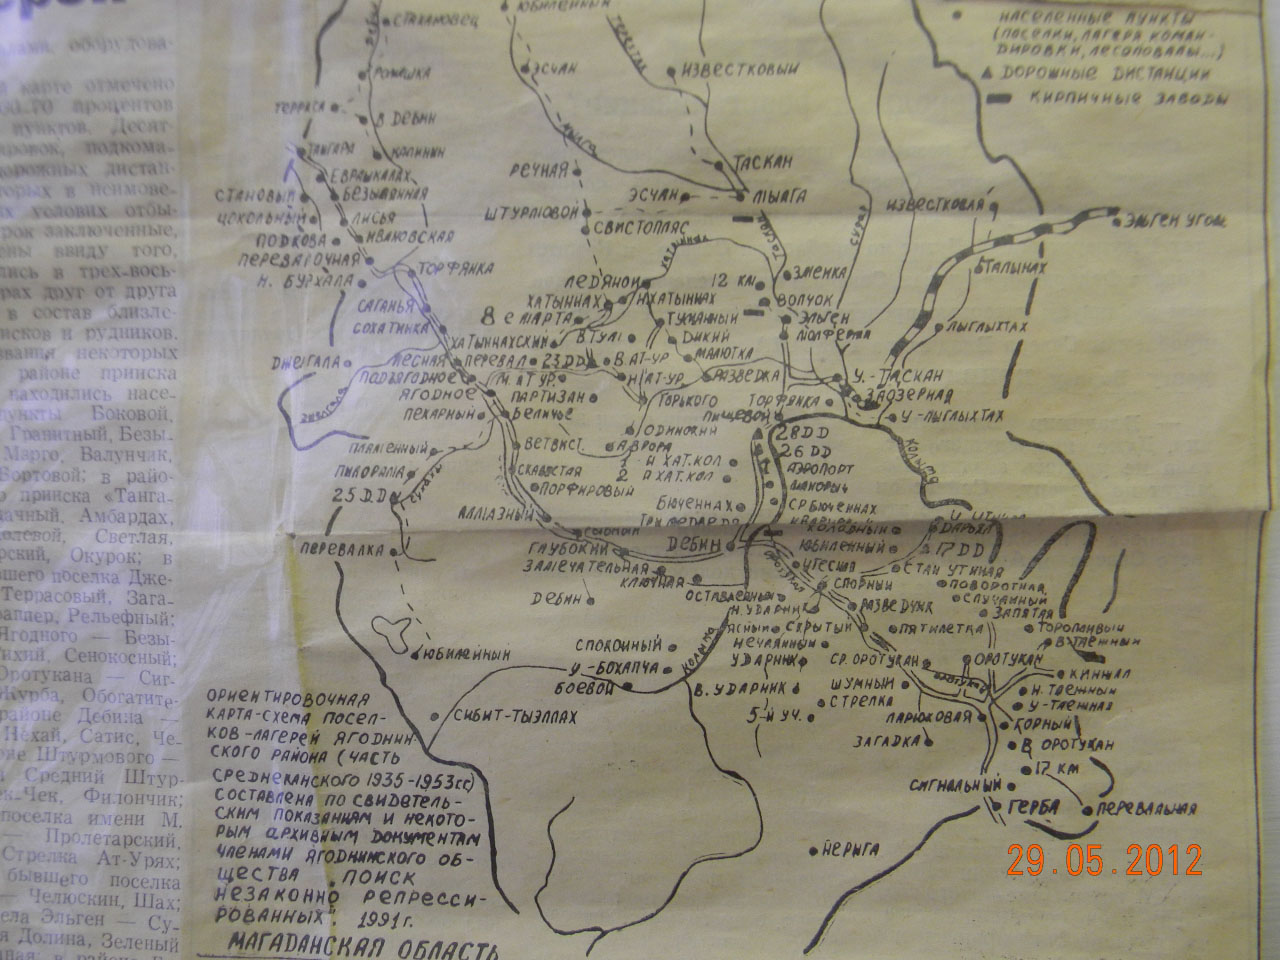 лами, оборудова-
й карте отмечено
70 процентов
пунктов. Десят-
ровок, подкома-
дорожных дистан-
торых в неимове-
х условиях отбы-
рок заключенные,
ены ввиду того,
лись в трех-вось-
рах друг от друга
в состав близле-
исков и рудников.
звания некоторых
районе прииска
находились насе-
пункты Боковой,
Гранитный, Безы-
Марго, Валунчик,
Бортовой; в райо-
о прииска «Танга-
ачный, Амбардах,
олевой, Светлая,
рский, Окурок; в
вшего поселка Дже-
Террасовый, Зага-
Рельефный;
Ягодного — Безы-
тихий, Сенокосный;
Оротукана — Сиг-
Журба, Обогатите-
районе Дебина —
Нехай, Сатис, Че-
не Штурмового —
и Средний Штур-
к-Чек, Филончик;
поселка имени М.
— Пролетарский,
Стрелка Ат-Урях;
бывшего поселка
— Челюскин, Шах;
ела Эльген — Су-
я Долина, Зеленый
НАСЕЛЕННЫЕ ПУНКТЫ
(ПОСЕЛКИ, ЛАГЕРЯ КОМАН-
ДИРОВКИ, ЛЕСОПОВАЛЫ...)
ДОРОЖНЫЕ ДИСТАНЦИИ
КИРПИЧНЫЕ ЗАВОДЫ
СТАХАНОВЕЦ
ЮБИЛЕЙНЫЙ
РОМАШКА
ЭСЧАН
ИЗВЕСТКОВЫЙ
ТЕРРАСА
В ДЕБИН
ТАНГАРА
КАЛИНИН
МЫЛГА
ТАСКАН
ЕВРАШКАЛАХ
РЕЧНАЯ
СТАНОВЫЙ
БЕЗЫМЯННАЯ
ЭСЧАН
МЫЛГА
ЦОКОЛЬНЫЙ
ЛИСЬЯ
ШТУРМОВОЙ
ИЗВЕСТКОВАЯ
ЭЛЬГЕН УГОЛЬ
СВИСТОПЛЯС
ТАСКАН
СУХАЯ
ПОДКОВА
ИВАНОВСКАЯ
ПЕРЕВАЛОЧНАЯ
ТОРФЯНКА
ХАТЫННАХ
Н. БУРХАЛА
ЛЕДЯНОЙ
12 КМ
ЗМЕЙКА
ТАЛЫНАХ
САГАНЬЯ
ХАТЫННАХ
Н.ХАТЫННАХ
ВОЛЧОК
СОХАТИНКА
8 е МАРТА
ТУМАННЫЙ
ЭЛЬГЕН
МЫЛГЫХТАХ
ХАТЫННАХСКИЙ
В.ТУЛИ
ДИКИЙ
МОЛФЕРМА
ДЖЕЛГАЛА
ЛЕСНАЯ
ПЕРЕВАЛ
23 DD
В.АТ-УР
МАЛЮТКА
ДЖЕЛГАЛА
ПОДЪЯГОДНОЕ
М. АТ УР.
Н/АТ-УР
РАЗВЕДКА
У.-ТАСКАН
ЯГОДНОЕ
ПАРТИЗАН
ГОРЬКОГО
ТОРФЯНКА
ЗАОЗЕРНАЯ
ПЕКАРНЫЙ
БЕЛИЧЬЕ
ПИЩЕВОЙ
У-МЫЛГЫХТАХ
ПЛАМЕННЫЙ
ВЕТВИСТ.
АВРОРА
ОДИНОКИЙ
28DD
КОЛЫМА
ПИКОРАМА
СКАЛИСТАЯ
1 Й ХАТ.КОЛ
26 DD
25 DD
ПОРФИРОВЫЙ
2 Й ХАТ.КОЛ
АЭРОПОРТ
АЛМАЗНЫЙ
БЮЧЕННАХ
СР БЮЧЕННАХ
ПЕРЕВАЛКА
ГЛУБОКИЙ
ДЕБИН
ЮБИЛЕЙНЫЙ
17 DD
ЗАМЕЧАТЕЛЬНАЯ
УТЕСНЫЙ
СТАН УТИНАЯ
КЛЮЧНАЯ
СПОРНЫЙ
ПОВОРОТНАЯ
ДЕБИН
ОСТАВЛЕННЫЙ
СЛУЧАЙНЫЙ
Н.УДАРНИК
РАЗВЕДЧИК
ЗАПЯТАЯ
ЯСНЫЙ
СКРЫТЫЙ
ПЯТИЛЕТКА
ТОРОПЛИВЫЙ
НЕЧАЯННЫЙ
В.ТАЕЖНЫЙ
ЮБИЛЕЙНЫЙ
СПОКОЙНЫЙ
КОЛЫМА
УДАРНИК
СР. ОРОТУКАН
ОРОТУКАН
КИНЖАЛ
У-БОХАПЧА
БОЕВОЙ
В. УДАРНИК
ШУМНЫЙ
ОРОТУКАН
Н. ТАЕЖНЫЙ
СТРЕЛКА
У-ТАЕЖНАЯ
СИБИТ-ТЫЭЛЛАХ
5-Й УЧ.
ЛАРЮКОВАЯ
ГОРНЫЙ
ЗАГАДКА
В ОРОТУКАН
17 КМ
СИГНАЛЬНЫЙ
ГЕРБА
ПЕРЕВАЛЬНАЯ
НЕРЫГА
ОРИЕНТИРОВОЧНАЯ
КАРТА-СХЕМА ПОСЕЛ-
КОВ-ЛАГЕРЕЙ ЯГОДНИН-
СКОГО РАЙОНА (ЧАСТЬ
СРЕДНЕКАНСКОГО 1935-1953гг)
СОСТАВЛЕНА ПО СВИДЕТЕЛЬ-
СКИМ ПОКАЗАНИЯМ И НЕКОТО-
РЫМ АРХИВНЫМ ДОКУМЕНТАМ
ЧЛЕНАМИ ЯГОДНИНСКОГО ОБ-
ЩЕСТВА „ПОИСК
НЕЗАКОННО РЕПРЕССИ-
РОВАННЫХ". 1991г.
МАГАДАНСКАЯ ОБЛАСТЬ
29.05.2012